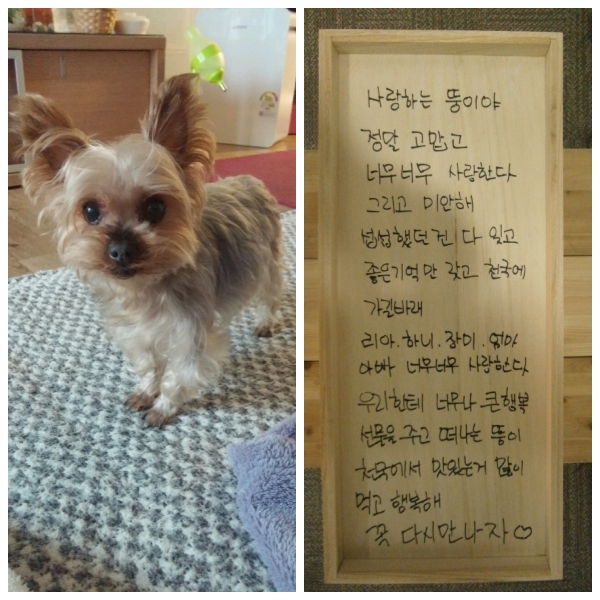 사랑하는 뚱이야
정말 고맙고
너무너무 사랑한다
그리고 미안해
섭섭했던건 다 잊고
좋은기억만 갖고 천국에
가길바래
리아.하니.장미.엄마
아빠 너무너무 사랑한다
우리한테 너무나 큰행복
선물을 주고 떠나는 뚱이
천국에서 맛있는거 많이
먹고 행복해
꼭 다시만나자♡